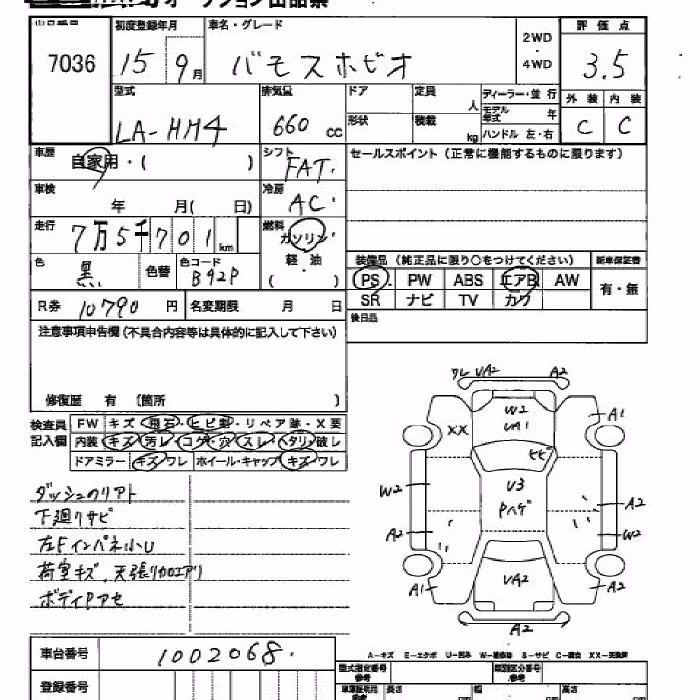 オークション出品票
出品番号 初度登録年月 車名・グレード 2WD・4WD 評価点
7036 15 9月 バモスホビオ 3.5
型式 排気量 ドア 定員 人 ディーラー・並行 外装 内装
LA-HM4 660cc 形状 積載 kg モデル年式 年 C C
ハンドル 左・右
車歴 自家用・( ) シフト FAT. セールスポイント(正常に機能するものに限ります)
車検 年 月( 日) 冷房 AC.
走行 7万5千701km 燃料 ガソリン
軽・油
( )
色 黒 色替 色コード B92P 装備品(純正品に限り○をつけてください) 新車保証書
PS. PW ABS エアB AW 有・無
SR ナビ TV カワ
R券 10790円 名変期限 月 日 後日品
注意事項申告欄(不具合内容等は具体的に記入して下さい)
修復歴 有 (箇所 )
検査員記入欄 FW キズ・飛石・ヒビ割・リペア跡・X要
内装 キズ・汚レ・コゲ・穴・スレ・タリ・破レ
ドアミラー キズ・ワレ ホイール・キャップ キズ・ワレ
ダッシュのリアト
下廻りサビ
左Fインパネ小U
荷室キズ、天張り加工アリ
ボディPアセ
ワレ UA2 A2
XX W2 UA1 A1
ヒビ
W2 U3 Pハゲ A2
A2 W2
A1 UA2 A2
A2
A-キズ E-エクボ U-凹み W-補修跡 S-サビ C-腐食 XX-交換済
車台番号 1002068.
型式指定番号 類別区分番号
登録番号 長さ cm 幅 cm 高さ cm